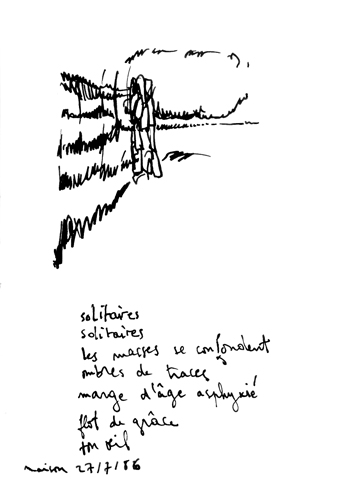 solitaires
solitaires
les masses se confondent
ombres de traces
marge d'âge asphyxié
flot de grâce
ton œil
maison 27/7/86